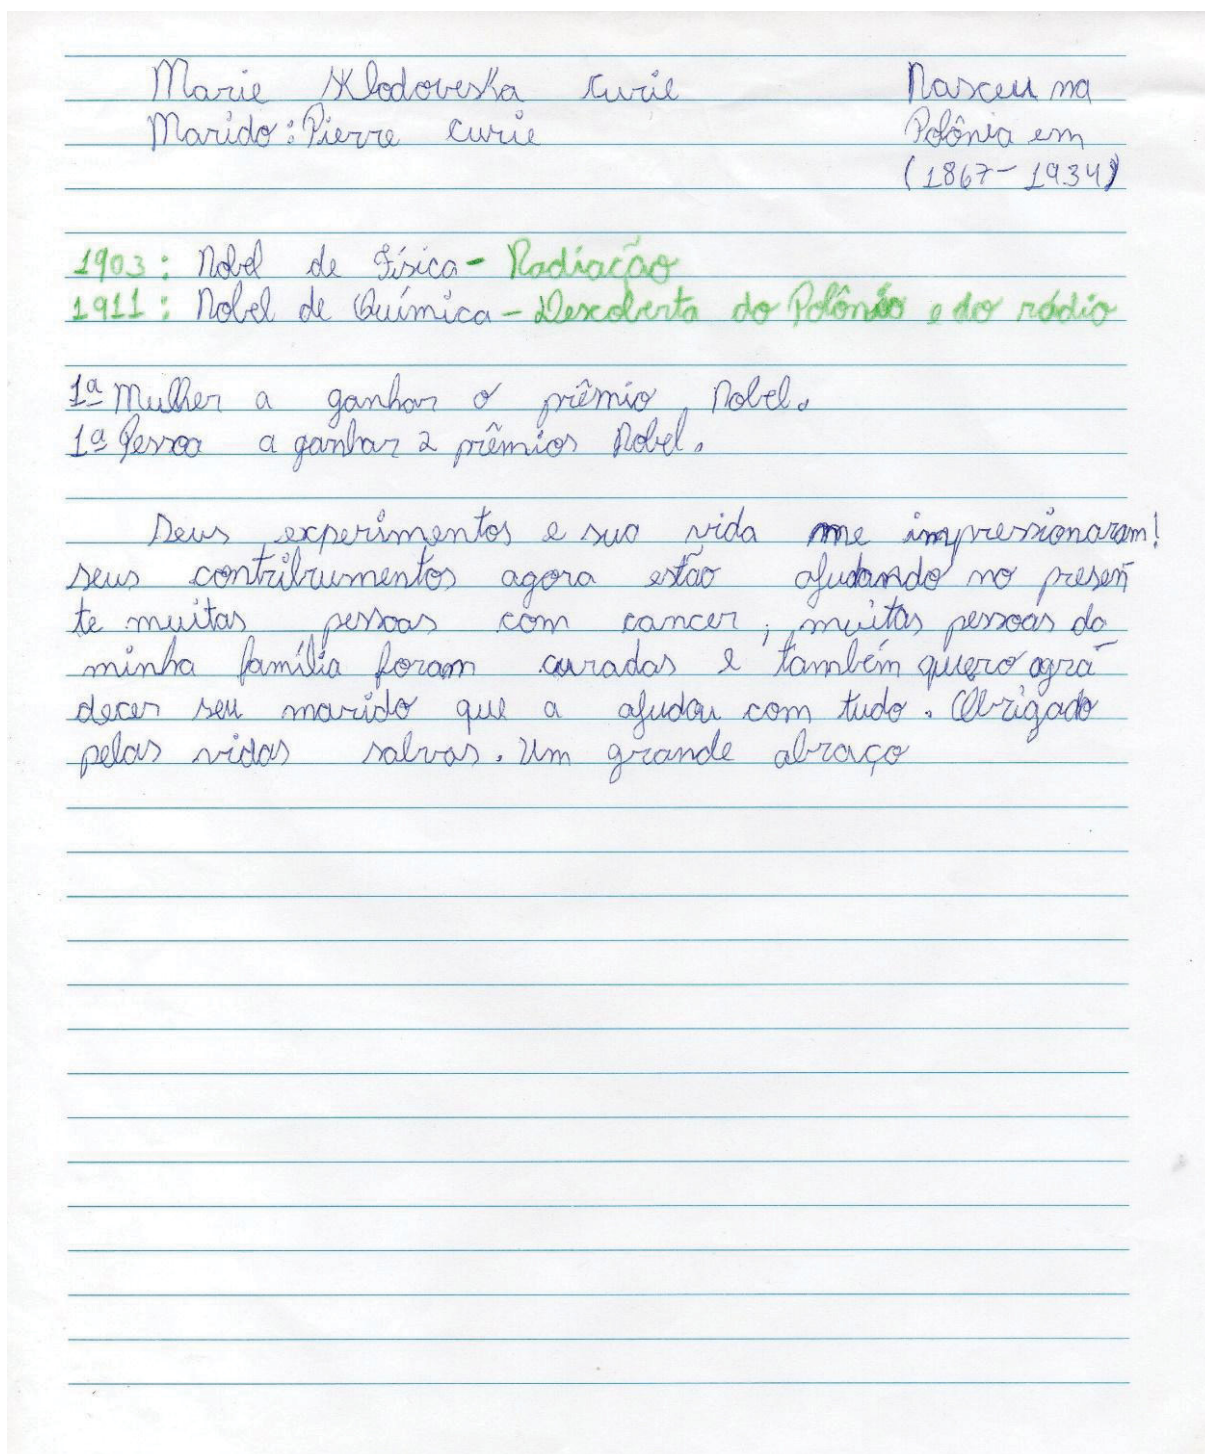 Marie Sklodoveska Curie
Marido: Pierre Curie
Nasceu na
Polônia em
(1867-1934)
1903: Nobel de Física - Radiação
1911: Nobel de Química - Descoberta do Polônio e do rádio
1ª Mulher a ganhar o prêmio Nobel.
1ª Pessoa a ganhar 2 prêmios Nobel.
Seus experimentos e sua vida me impressionaram!
seus contribumentos agora estão ajudando no presen-
te muitas pessoas com cancer, muitas pessoas da
minha família foram curadas e também quero agra-
decer seu marido que a ajudou com tudo. Obrigado
pelas vidas salvas. Um grande abraço